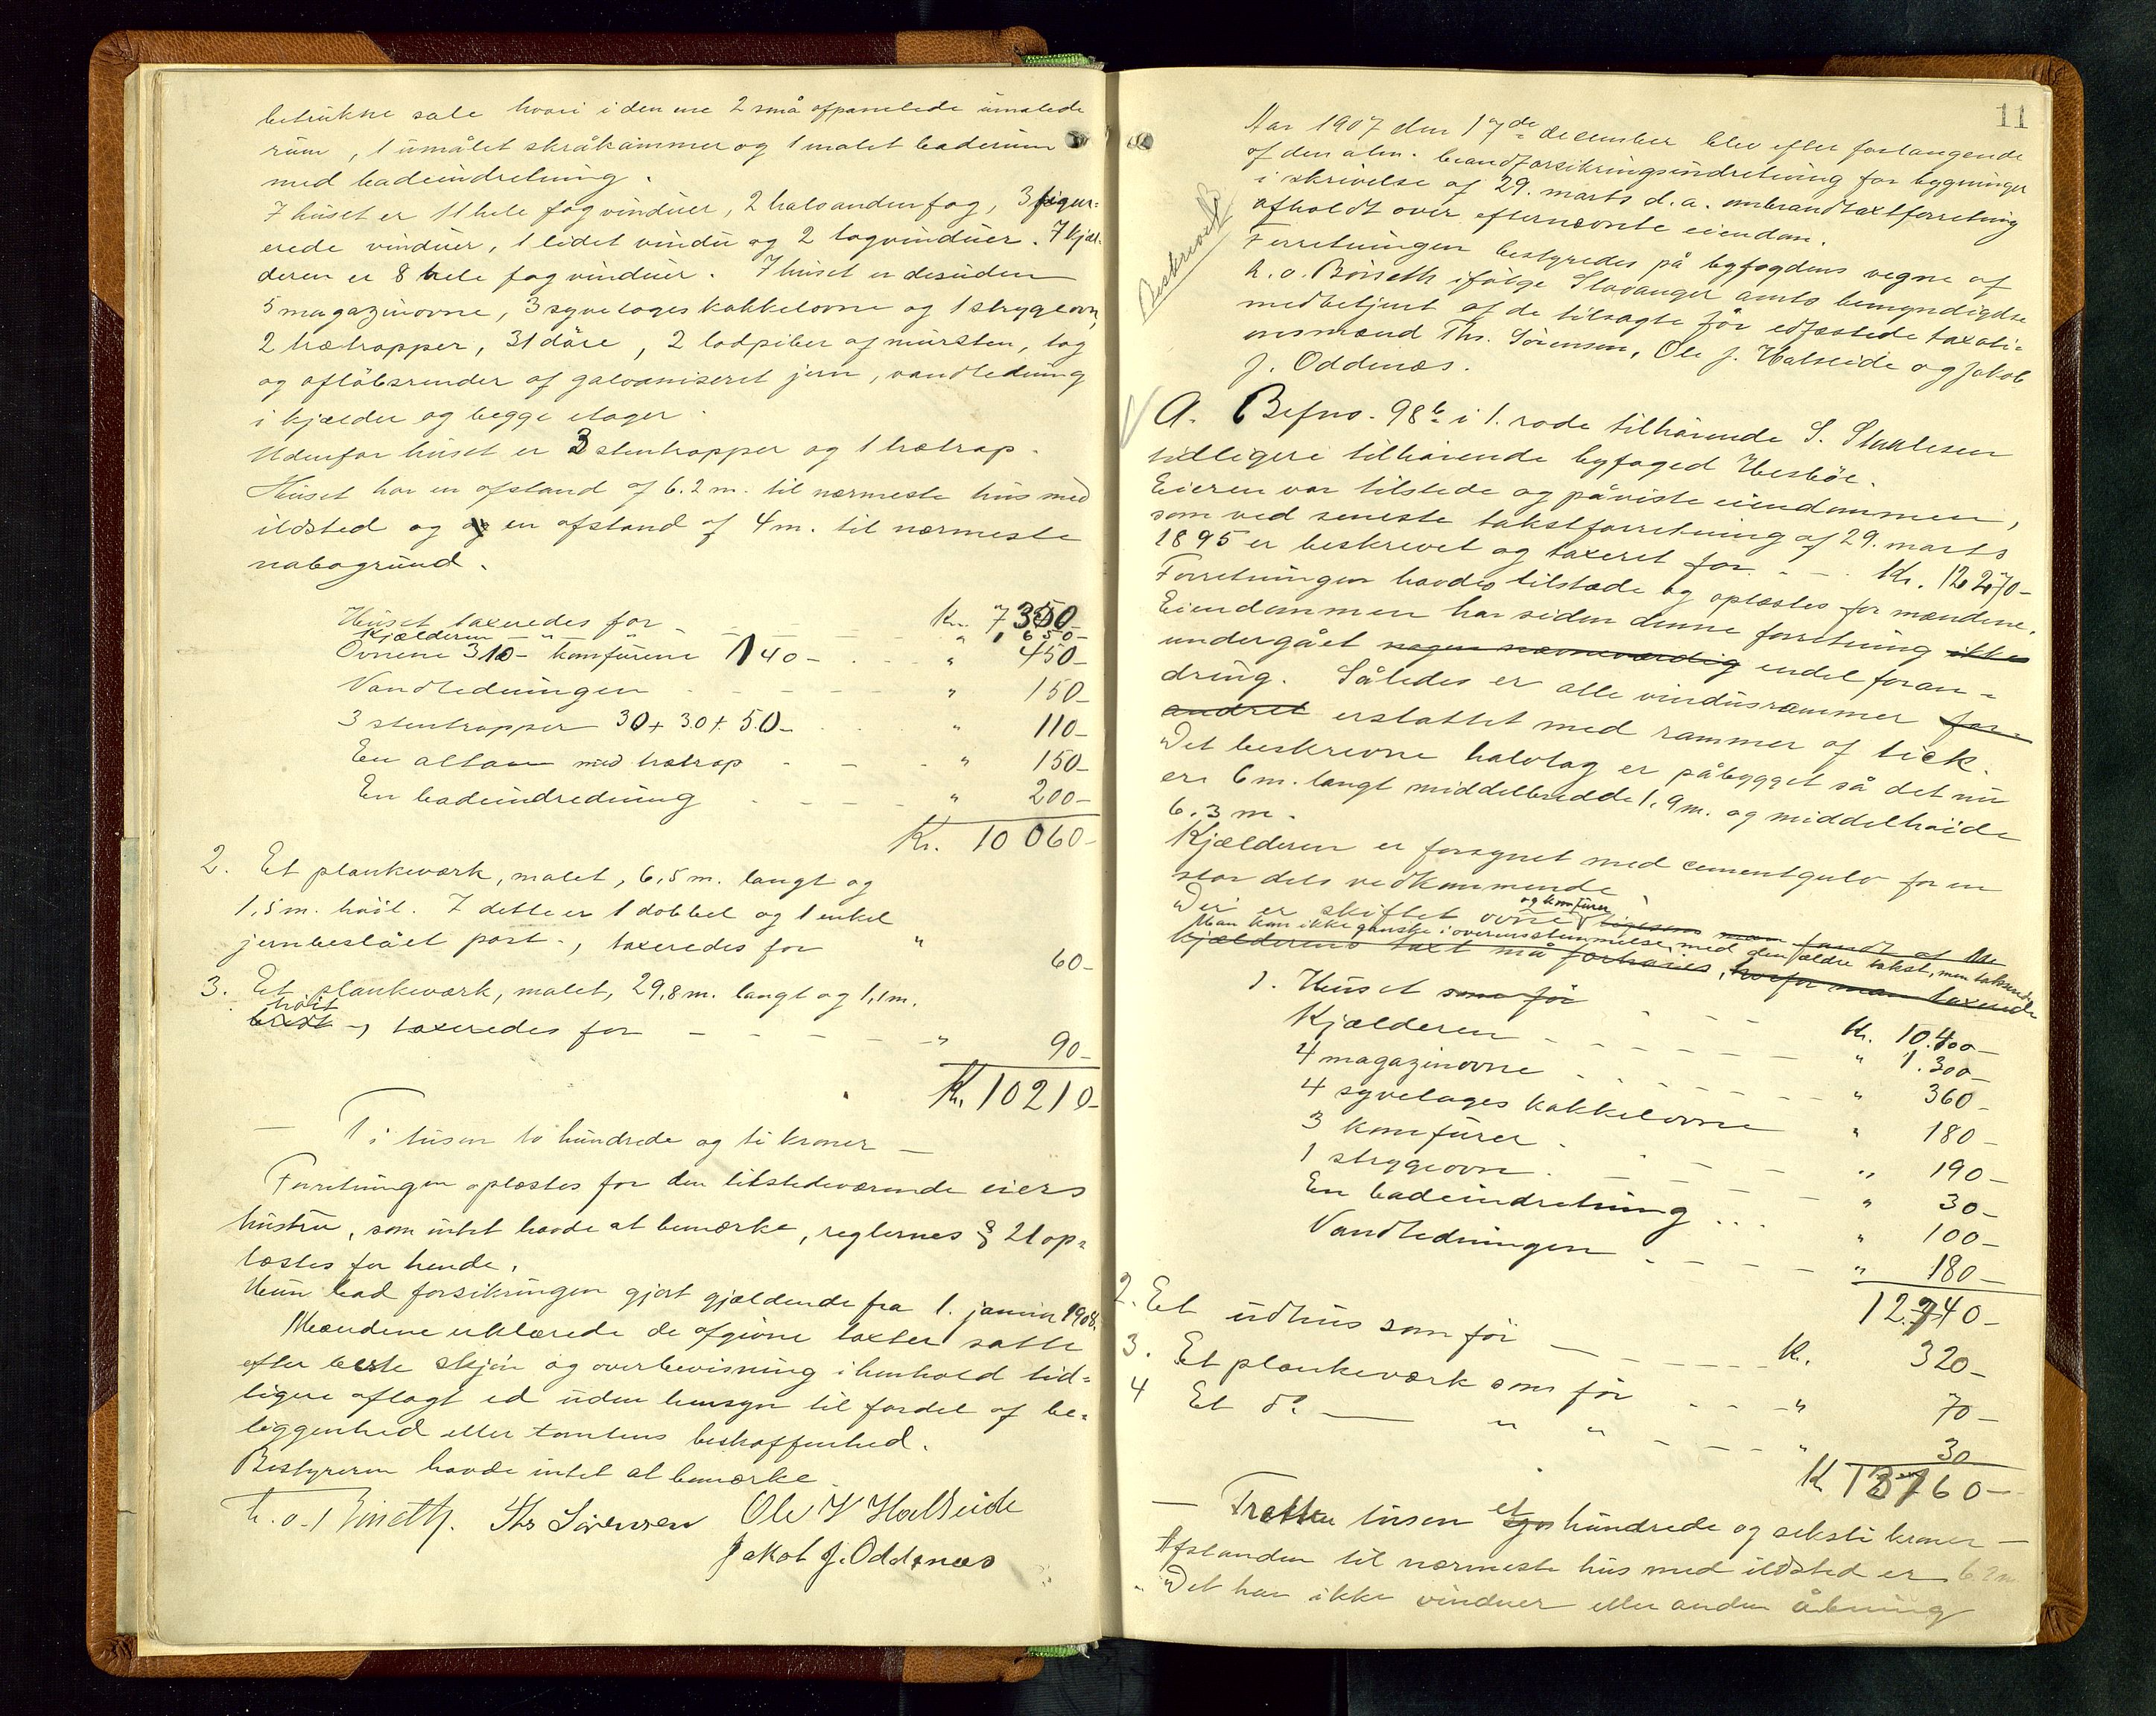 betrukne sale hvori i den ene 2 små afpanelede umalede
rum, 1 umålet skråkammer og 1 malet baderum
med badeindretning.
I huset er 11 hele fag vinduer, 2 halvanden fag, 3 figur=
erede vinduer, 1 lidet vindu og 2 tagvinduer. I kjæl=
deren er 8 hele fag vinduer. I huset er desuden
5 magazinovne, 3 syvetages kakkelovne og 1 strygeovn,
2 trætrapper, 31 döre, 2 lodpiber af mursten, tag
og aflöbsrender af galvaniseret jern, vandledning
i kjælder og begge etager.
Udenfor huset er 3 stentrapper og 1 trætrap.
Huset har en afstand af 6.2 m. til nærmeste hus med
ildsted og en afstand af 4 m. til nærmeste
nabogrund.
Huset taxeredes for - - - Kr. 7350-
Kjælderen - " - " " 1650-
Ovnene 310- komfurene 140- . . . " 450-
Vandledningen - - - " 150-
3 stentrapper 30 + 30 + 50- . . " 110-
En altan med trætrap - - - " 150-
En badeindredning - - - " 200-
Kr. 10 060-
2. Et plankeværk, malet, 6,5 m. langt og
1,5 m. höit. I dette er 1 dobbel og 1 enkel
jernbeslået port -, taxeredes for " 60-
3. Et plankeværk, malet, 29,8 m. langt og 1,1 m.
höit
bredt -, taxeredes for - - - - - " 90-
Kr. 10210-
— Ti tusen to hundrede og ti kroner —
Forretningen oplæstes for den tilstedeværende eiers
hustru, som intet havde at bemærke, reglernes § 21 op=
læstes for hende.
Hun bad forsikringen gjort gjældende fra 1. januar 1908.
Mændene erklærede de afgivne taxter satte
efter beste skjön og overbevisning i henhold tid=
ligere aflagt ed uden hensyn til fordel af be=
liggenhed eller tomtens beskaffenhed.
Bestyreren havde intet at bemærke.
h. o. Börseth. Ths Sörensen Ole J Halseide
Jakob J. Oddenæs
11
Aar 1907 den 17de december blev efter forlangende
af den alm. brandforsikringsindretning for bygninger
i skrivelse af 29. marts d. a. ombrandtaxtforretning
afholdt over efternævnte eiendom.
Forretningen bestyredes på byfogdens vegne af
h. o. Börseth ifölge Stavanger amts bemyndigelse
medbetjent af de tilsagte för edfæstede taxati=
onsmænd Ths. Sörensen, Ole J. Halseide og Jakob
J. Oddenæs.
Beskrivelse
A. Befno. 98b i 1. rode tilhörende S. Staalesen
tidligere tilhörende byfoged Hesböe.
Eieren var tilstede og påviste eiendommen,
som ved seneste takstforretning af 29. marts
1895 er beskrevet og taxeret for - - - Kr. 12270-
Forretningen havdes tilstede og oplæstes for mændene.
Eiendommen har siden denne forretning ikke
undergået nogen nævneværdig endel foran=
dring. Således er alle vindusrammer for=
andret erstattet med rammer af tiek.
Det beskrevne halvtag er påbygget så det nu
er 6 m. langt middelbredde 1.9 m. og middelhöide
6.3 m.
Kjælderen er forsynet med cementgulv for en
stor dels vedkommende.
og komfurer
Der er skiftet ovne ligesom man fandt at
Man kan ikke ganske i overensstemmelse med den ældre takst, men takserede
kjælderens taxt må forhöies, hvofor man taxerede
1. Huset som för - - - Kr. 10.400-
Kjælderen - - - - - " 1.300-
4 magazinovne - - - - - " 360-
4 syvetages kakkelovne " 180-
3 komfurer. - - - " 190-
1 strygeovn. - - - " 30-
En badeindretning . . . " 100-
Vandledningen - - - - " 180-
12.740-
2. Et udhus som för - - - - Kr. 320-
3. Et plankeværk som för - - - " 70-
4 Et do. — " " - - - " 30
Kr 13160-
et
— Tretten tusen hundrede og seksti kroner —
Afstanden til nærmeste hus med ildsted er 6.2 m
Det har ikke vinduer eller anden åbning